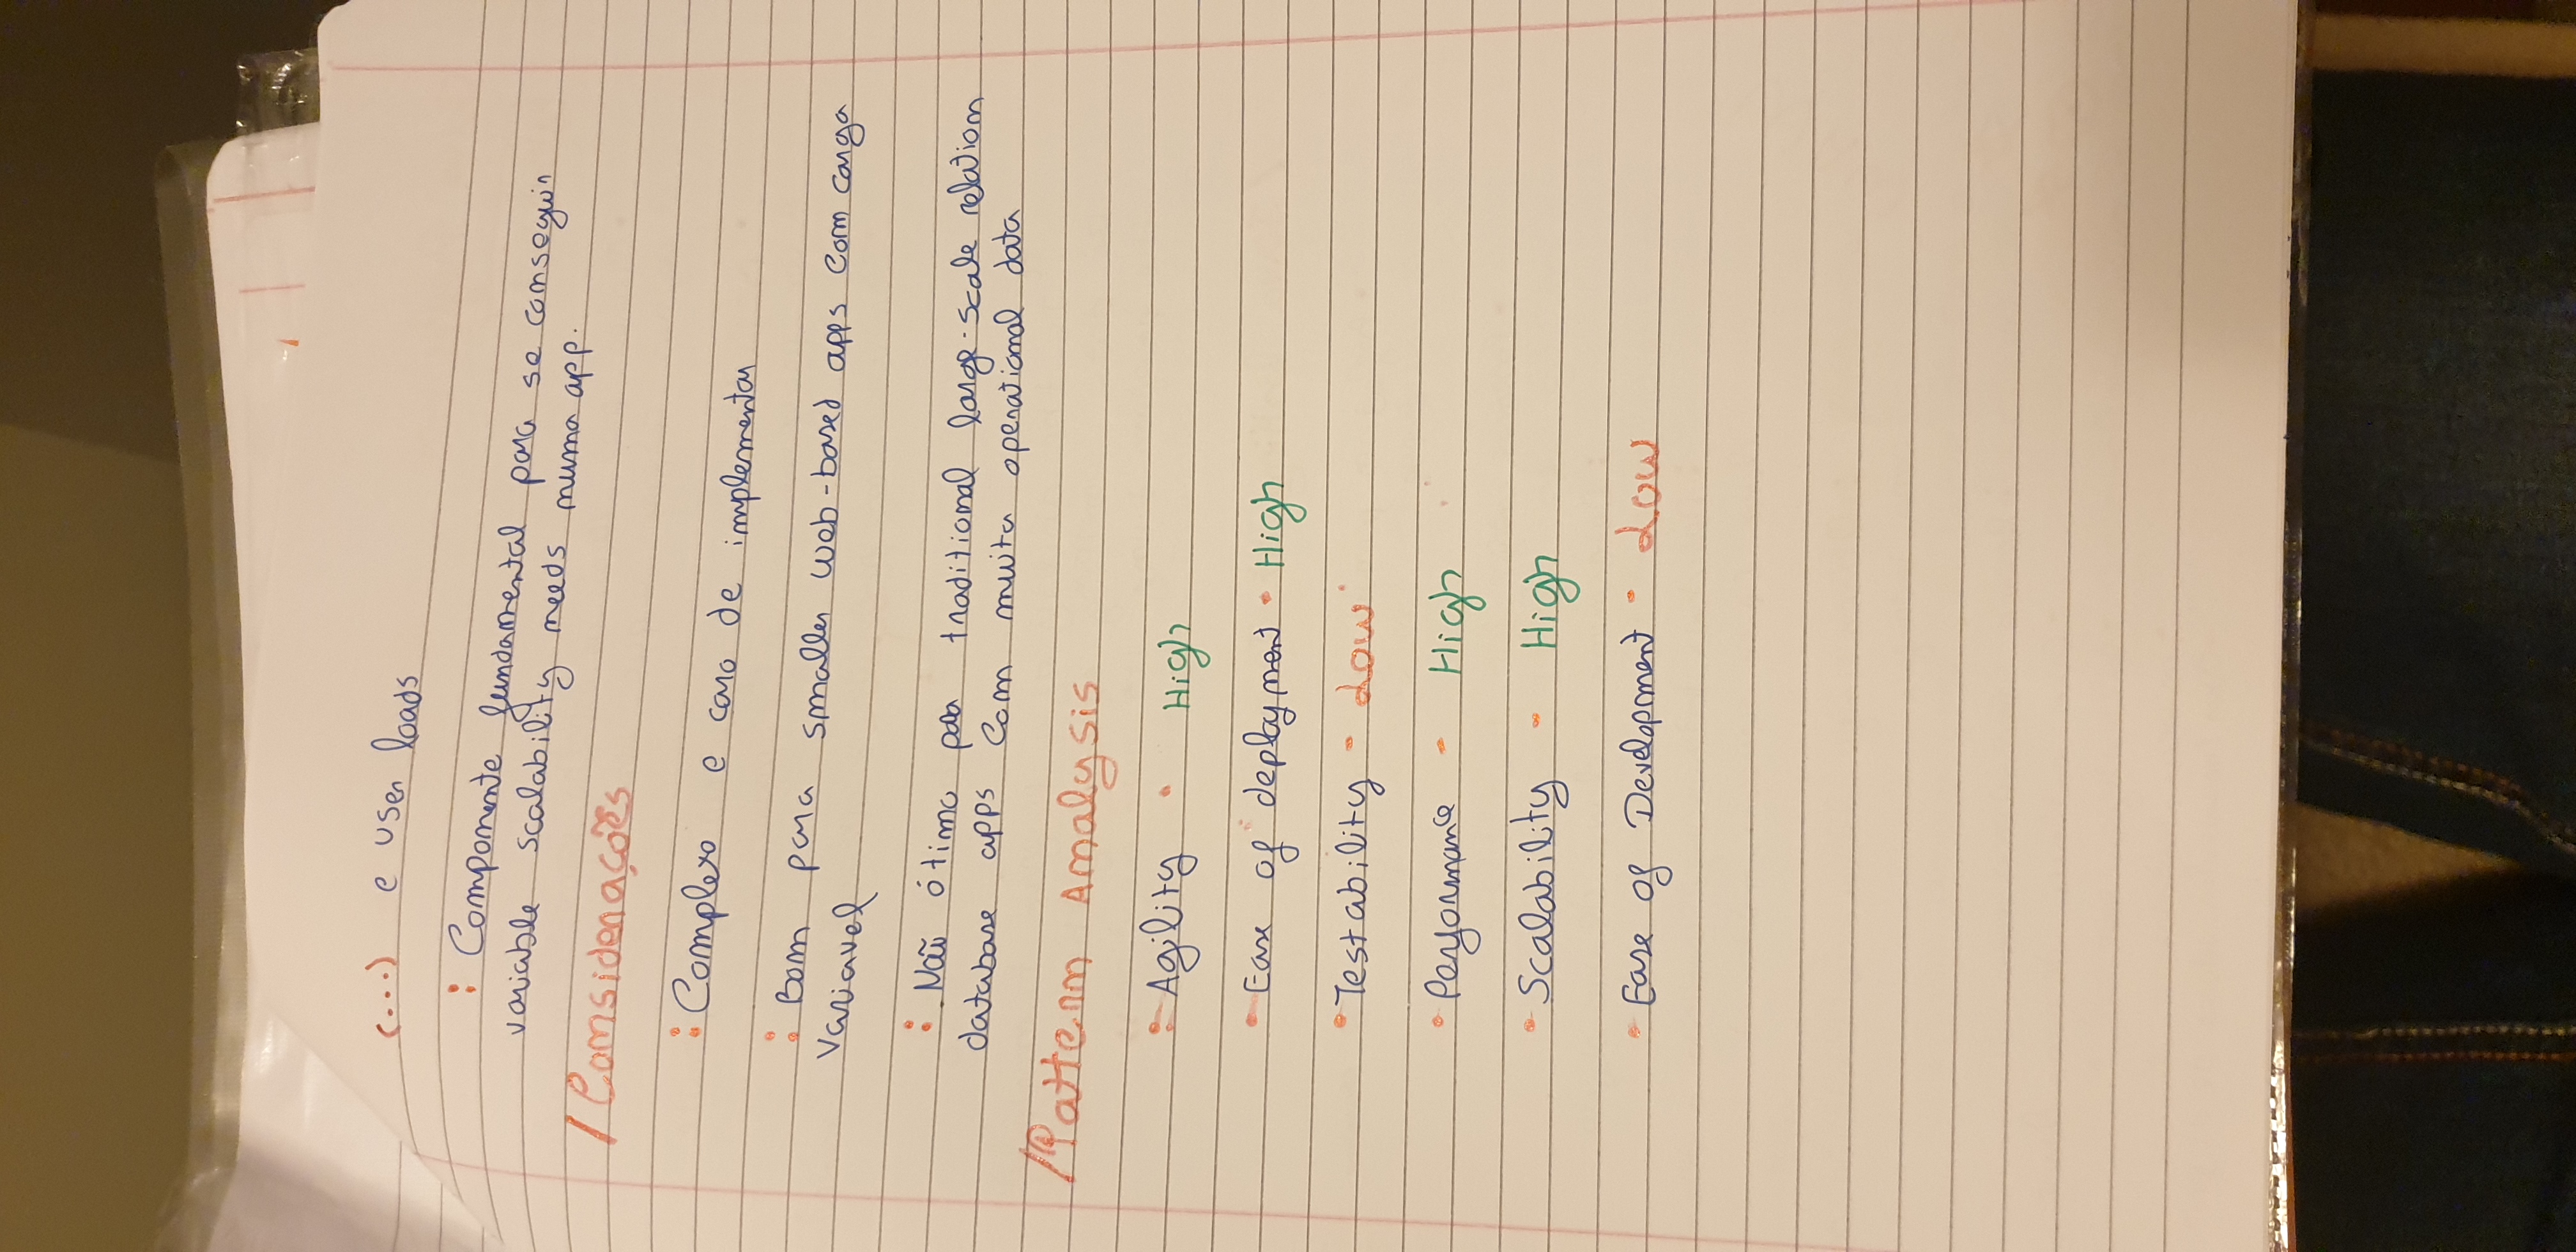 (...) e user loads
: Componente fundamental para se conseguir
variable scalability needs numa app.
/Considerações
: Complexo e caro de implementar
: Bom para smaller web-based apps com carga
variavel
: Não ótimo para traditional large-scale relation
database apps com muita operational data
/Pattern Analysis
: Agility - High
- Ease of deployment - High
- Testability - Low
- Performance - High
- Scalability - High
- Ease of Development - Low